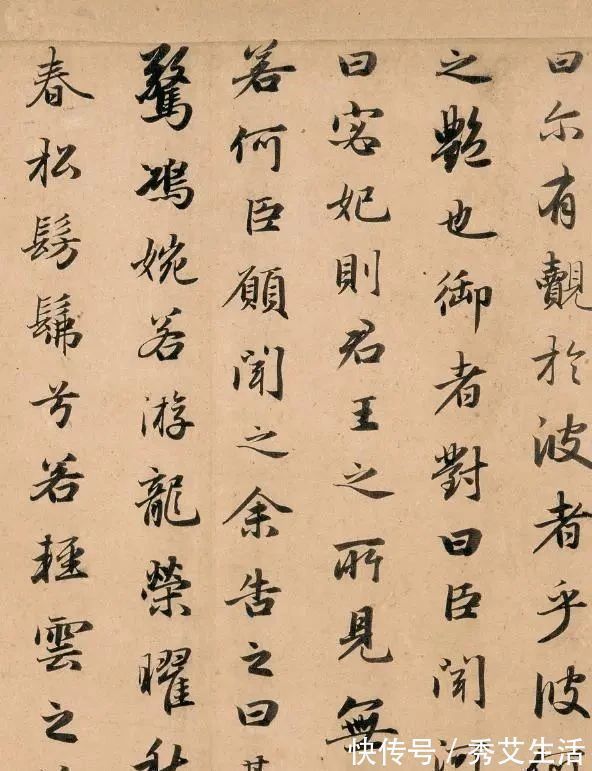 曰尓有覿於彼者乎彼
之艷也御者對曰臣聞河
曰宓妃則君王之所見無
若何臣願聞之余告之曰其
驚鴻婉若游龍榮曜秋
春松髣髴兮若輕雲之
快传号/秀艾生活